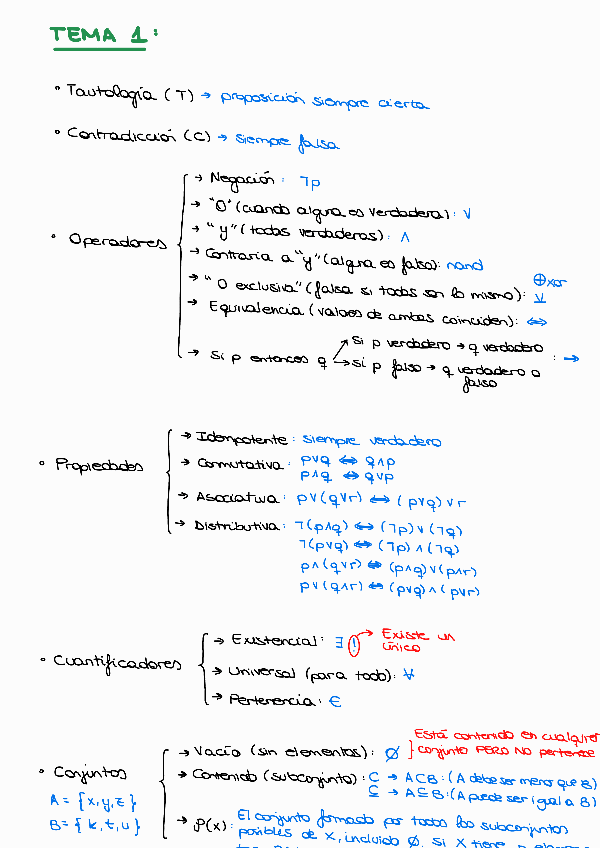 TEMA 1:
• Tautología (T) → proposición siempre cierta
• Contradicción (C) → siempre falsa
• Operadores
→ Negación: ¬p
→ "O" (cuando alguna es verdadera): ∨
→ "y" (todas verdaderas): ∧
→ Contraria a "y" (alguna es falsa): nand
→ "O exclusiva" (falsa si todas son lo mismo): ⊻ ⊕xor
→ Equivalencia (valores de ambas coinciden): ⇔
→ Si p entonces q
→ Si p verdadero → q verdadero
→ si p falso → q verdadero o falso
: →
• Propiedades
→ Idempotente: siempre verdadero
→ Conmutativa: p∨q ⇔ q∧p
p∧q ⇔ q∨p
→ Asociativa: p∨(q∨r) ⇔ (p∨q)∨r
→ Distributiva: ¬(p∧q) ⇔ (¬p)∨(¬q)
¬(p∨q) ⇔ (¬p)∧(¬q)
p∧(q∨r) ⇔ (p∧q)∨(p∧r)
p∨(q∧r) ⇔ (p∨q)∧(p∨r)
• Cuantificadores
→ Existencial: ∃ ! → Existe un
único
→ Universal (para todo): ∀
→ Pertenencia: ∈
• Conjuntos
A = {x,y,z}
B = {k,t,u}
→ Vacío (sin elementos): ∅ } Está contenido en cualquier
conjunto PERO NO pertenece
→ Contenido (subconjunto): ⊂ → A⊂B: (A debe ser menor que B)
⊆ → A⊆B: (A puede ser igual a B)
→ P(x): El conjunto formado por todos los subconjuntos
posibles de X, incluido ∅. Si X tiene n